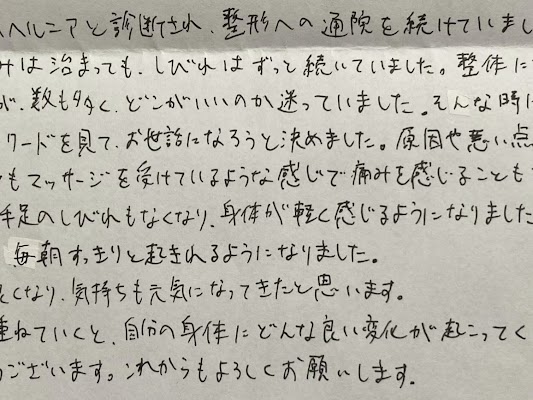 ヘルニアと診断され、整形への通院を続けていまし
みは治まっても、しびれはずっと続いていました。整体に
が、数も多く、どこがいいのか迷っていました。そんな時に
ワードを見て、お世話になろうと決めました。原因や悪い点
もマッサージを受けているような感じで痛みを感じることも
手足のしびれもなくなり、身体が軽く感じるようになりました
毎朝すっきりと起きれるようになりました。
良くなり、気持ちも元気になってきたと思います。
重ねていくと、自分の身体にどんな良い変化が起こってく
うございます。これからもよろしくお願いします。